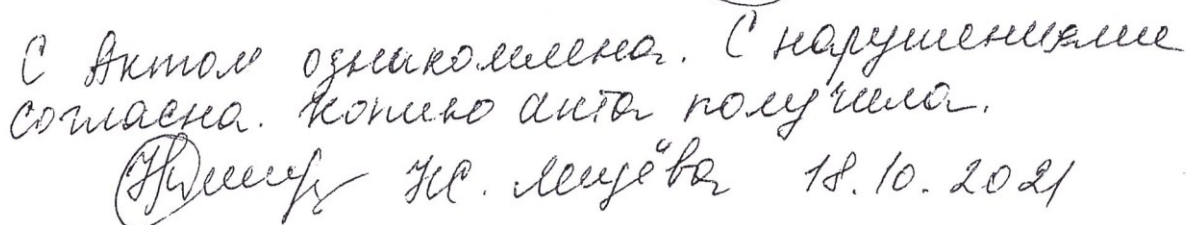 С Актом ознакомлена. С нарушениями
согласна. Копию акта получила.
Н.С. Мищёва 18.10.2021